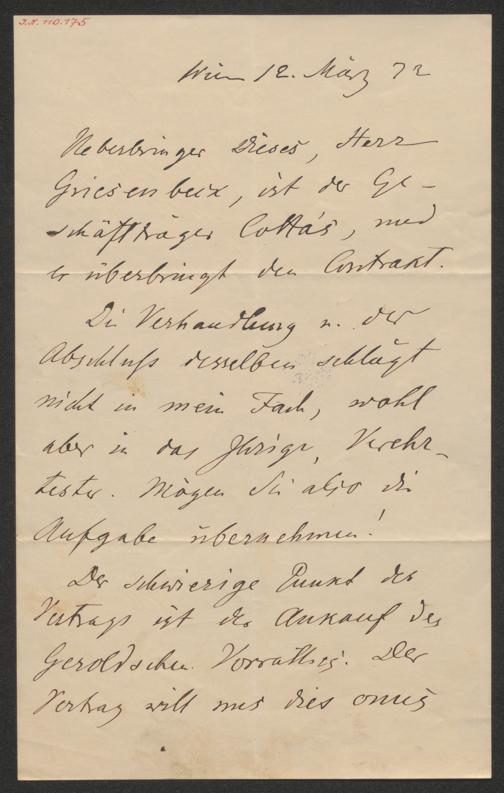 I.N. 110.175
Wien 12. März 72
Ueberbringer Dieses, Herr
Griesenbeck, ist der Ge-
schäftträger Cotta's, und
er überbringt den Contrakt.
Die Verhandlung u. der
Abschluß desselben schlägt
nicht in mein Fach, wohl
aber in das Ihrige, Verehr-
tester. Mögen Sie also die
Aufgabe übernehmen!
Der schwierige Punkt des
Vertrags ist der Ankauf des
Geroldschen Vorrathes. Der
Vertrag will uns dies onus